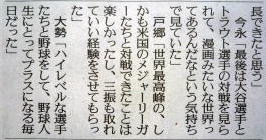 長できたと思う」
　今永「最後は大谷選手と
トラウト選手の対戦が見ら
れて、漫画みたいな世界っ
てあるんだなという気持ち
で見ていた」
　戸郷「世界最高峰の、し
かも米国のメジャーリーガ
ーたちと対戦できたことは
楽しかったし、三振を取れ
ていい経験をさせてもらっ
た」
　大勢「ハイレベルな選手
たちと野球をして、野球人
生にとってプラスになる毎
日だった」